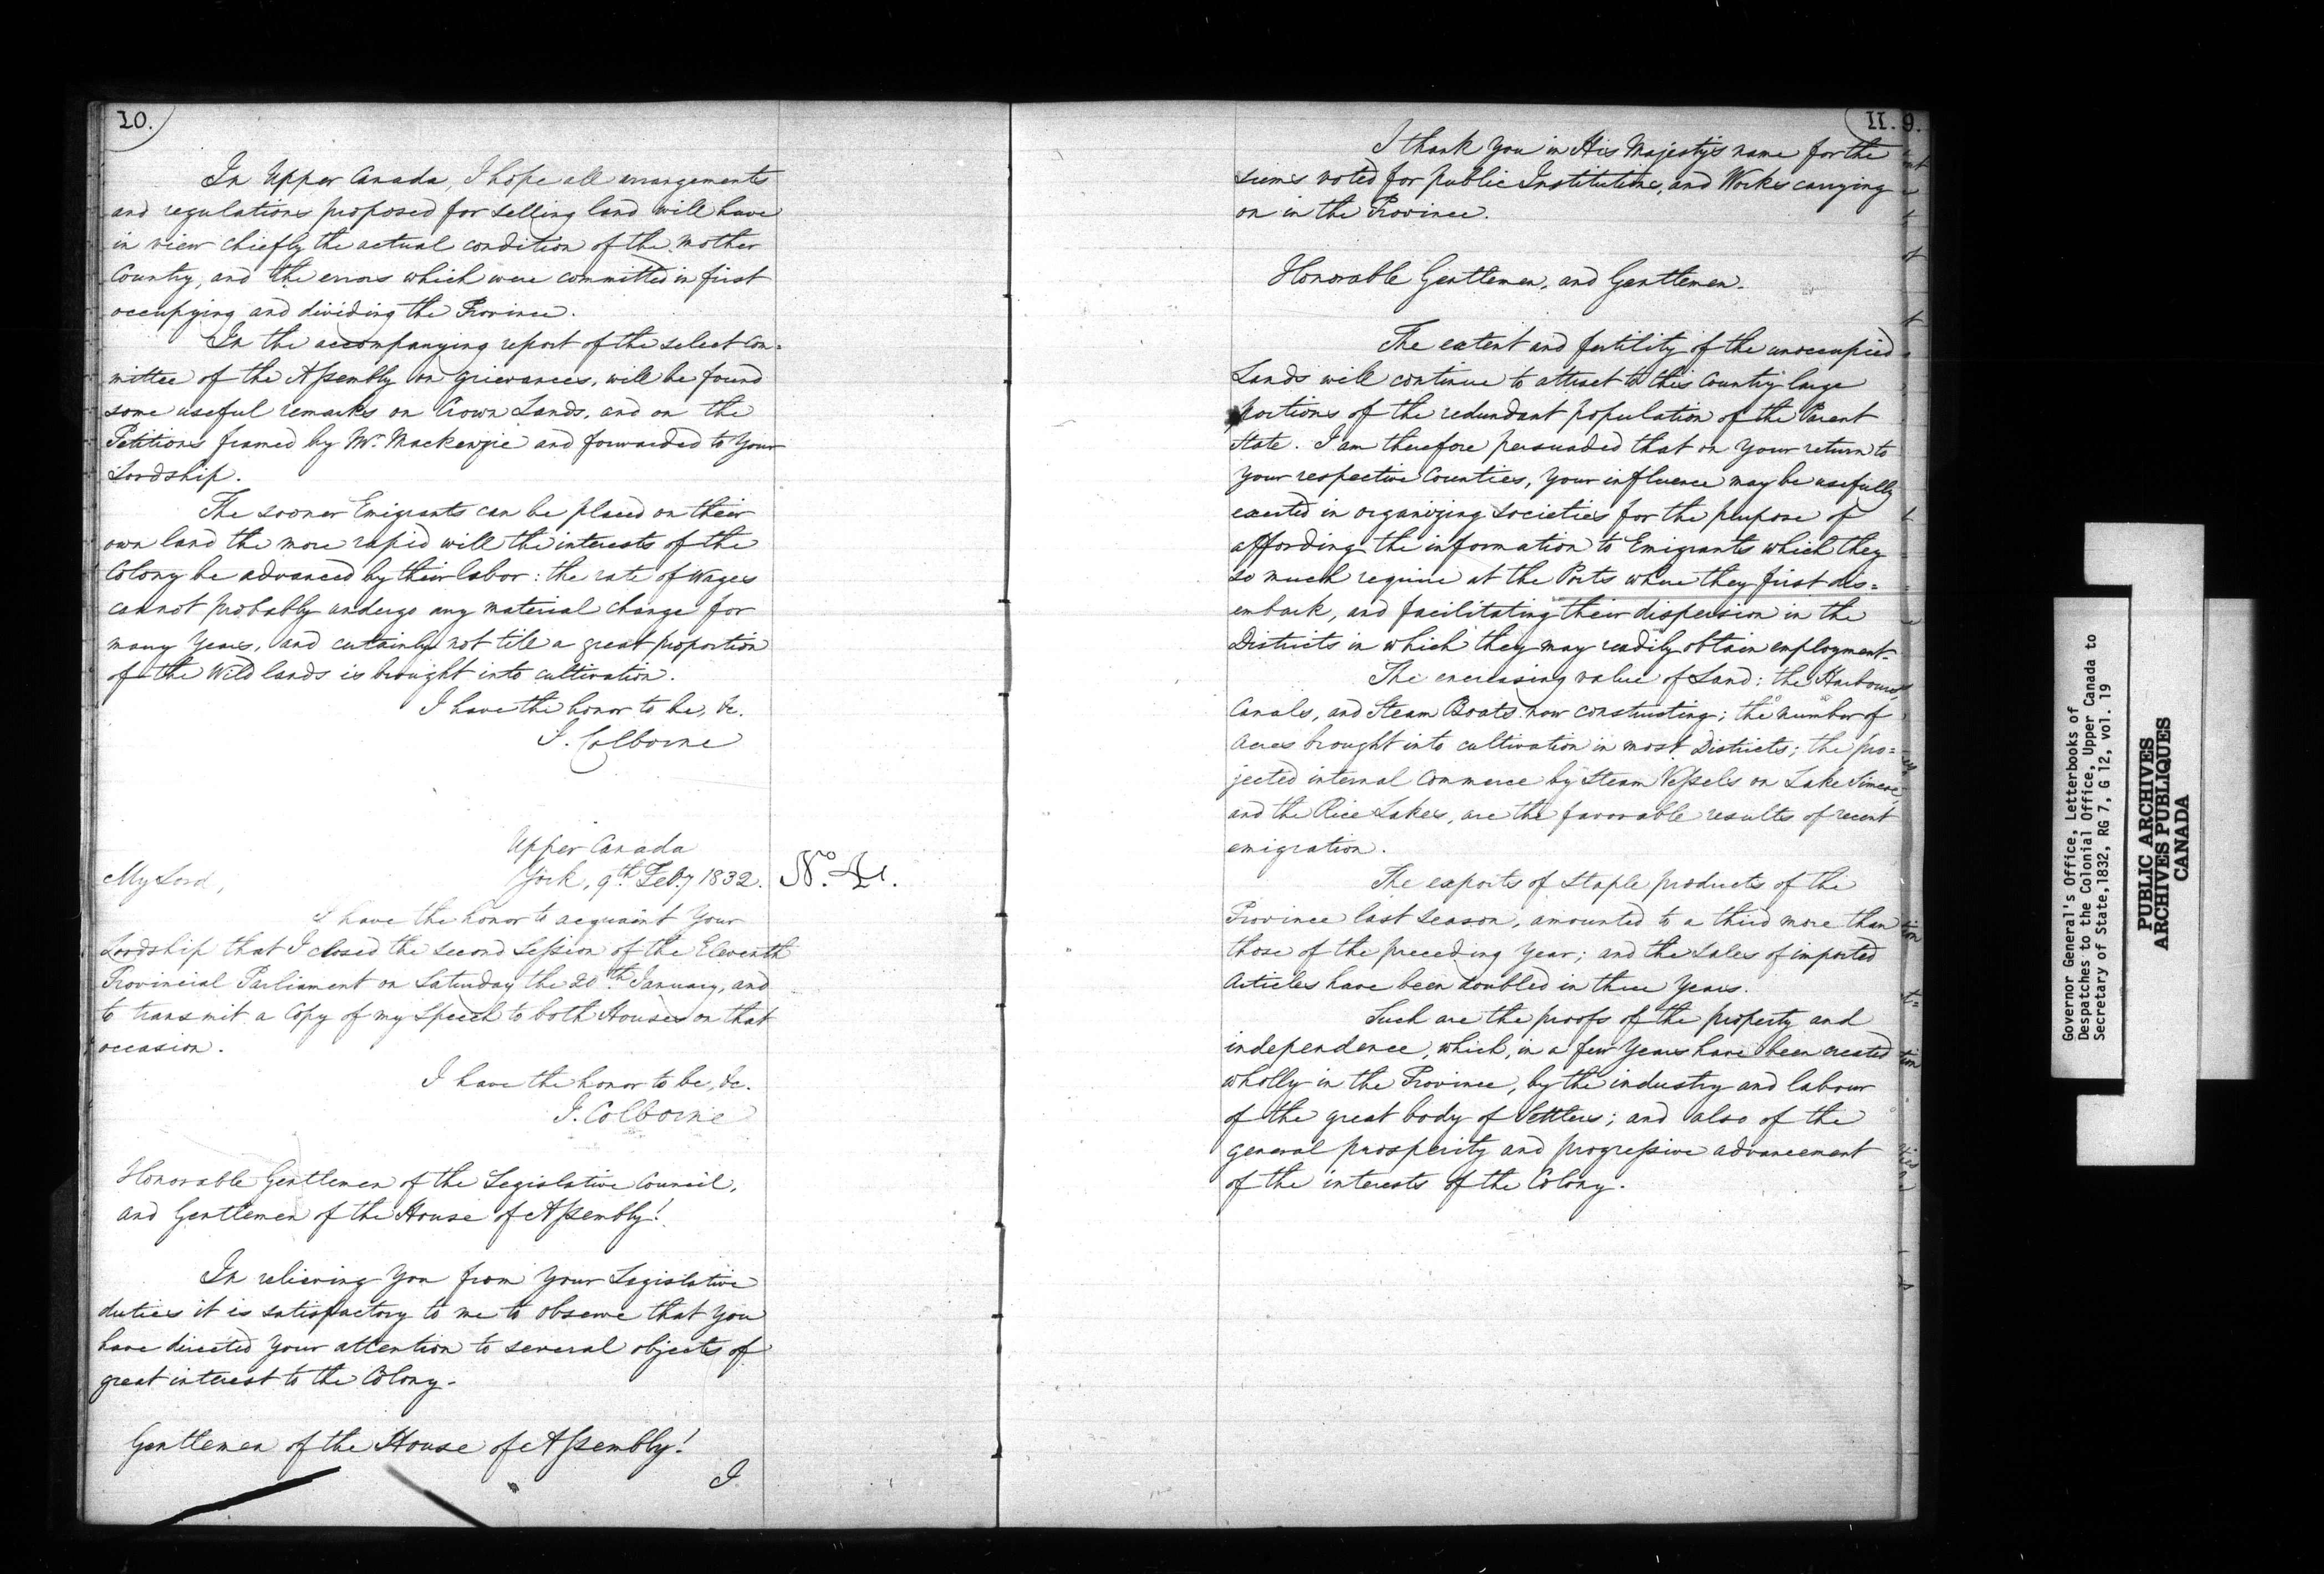 10.
In Upper Canada, I hope all arrangements
and regulations proposed for selling land will have
in view chiefly the actual condition of the Mother
Country, and the errors which were committed in first
occupying and dividing the Province.
In the accompanying report of the select Com=
mittee of the Assembly on Grievances, will be found
some useful remarks on Crown Lands, and on the
Petitions framed by Mr. Mackenzie and forwarded to Your
Lordship.
The sooner Emigrants can be placed on their
own land the more rapid will the interests of the
Colony be advanced by their labor: the rate of Wages
cannot probably undergo any material change for
many Years, and certainly not till a great proportion
of the Wild lands is brought into cultivation.
I have the honor to be, &c.
J. Colborne
Upper Canada
My Lord, York, 9th. Feby 1832. No. 4.
I have the honor to acquaint Your
Lordship that I closed the second Session of the Eleventh
Provincial Parliament on Saturday the 20th. January, and
to transmit a Copy of my Speech to both Houses on that
occasion.
I have the honor to be, &c.
J. Colborne
Honorable Gentlemen of the Legislative Council,
and Gentlemen of the House of Assembly!
In relieving You from Your Legislative
duties it is satisfactory to me to observe that You
have directed Your attention to several objects of
great interest to the Colony.
Gentlemen of the House of Assembly!
I
11. 9.
I thank You in His Majesty's name for the
sums voted for public Institutions, and Works carrying
on in the Province.
Honorable Gentlemen, and Gentlemen.
The extent and fertility of the unoccupied
Lands will continue to attract to this Country large
portions of the redundant population of the Parent
State. I am therefore persuaded that on Your return to
Your respective Counties, Your influence may be usefully
exerted in organizing Societies for the purpose of
affording the information to Emigrants which they
so much require at the Ports where they first dis=
embark, and facilitating their dispersion in the
Districts in which they may readily obtain employment.
The encreasing value of Land: the Harbours,
Canals, and Steam Boats now constructing; the number of
Acres brought into cultivation in most Districts; the pro=
jected internal Commerce by Steam Vessels on Lake Simcoe,
and the Rice Lakes, are the favorable results of recent
emigration.
The exports of Staple products of the
Province last season, amounted to a third more than
those of the preceding Year; and the Sales of imported
Articles have been doubled in three Years.
Such are the proofs of the property and
independence, which, in a few Years have been created
wholly in the Province, by the industry and labour
of the great body of Settlers; and also of the
general prosperity and progressive advancement
of the interests of the Colony.
Governor General's Office, Letterbooks of
Despatches to the Colonial Office, Upper Canada to
Secretary of State,1832, RG 7, G 12, vol. 19
PUBLIC ARCHIVES
ARCHIVES PUBLIQUES
CANADA